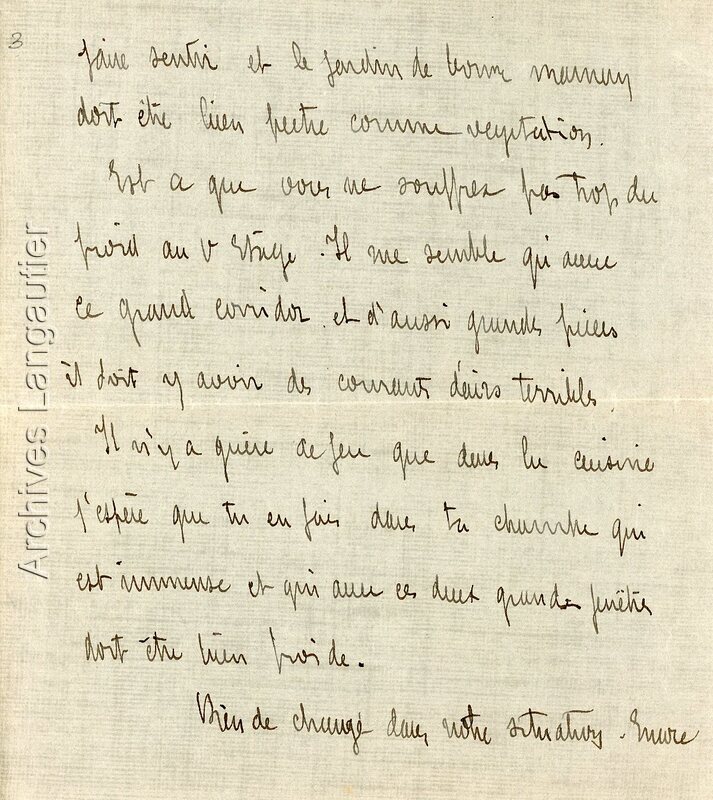 3
faire sentir et le jardin de bonne maman
doit être bien piètre comme végétation.
Est ce que vous ne souffrez pas trop du
froid au V Etage. Il me semble qu'avec
ce grand corridor et d'aussi grandes pièces
il doit y avoir des courants d'airs terribles.
Il n'y a guère de feu que dans la cuisine
j'espère que tu en fais dans ta chambre qui
est immense et qui avec ces deux grandes fenêtres
doit être bien froide.
Rien de changé dans notre situation. Encore
Archives Langautier